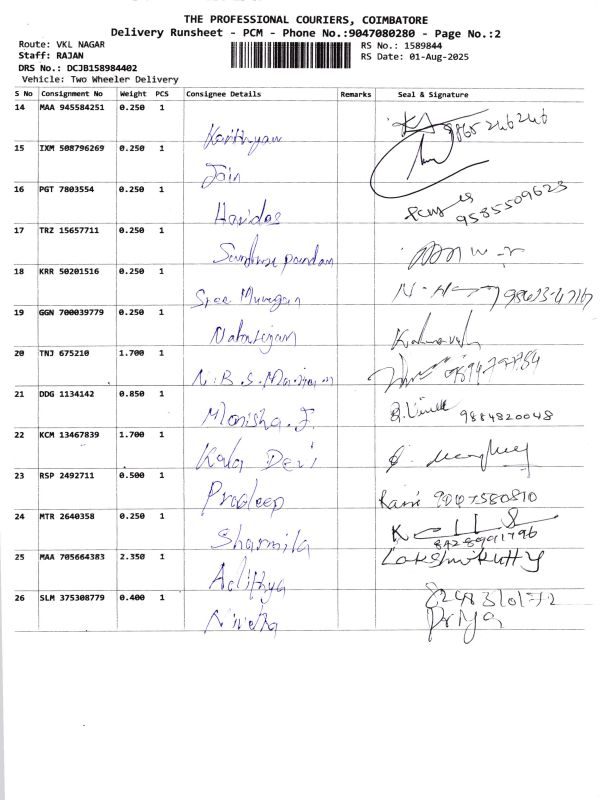 THE PROFESSIONAL COURIERS, COIMBATORE
Delivery Runsheet - PCM - Phone No.:9047080280 - Page No.:2
Route: VKL NAGAR
RS No.: 1589844
Staff: RAJAN
RS Date: 01-Aug-2025
DRS No.: DCJB158984402
Vehicle: Two Wheeler Delivery
S No Consignment No Weight PCS Consignee Details Remarks Seal & Signature
14 MAA 945584251 0.250 1
9865246246
15 IXM 508796269 0.250 1
Jain
16 PGT 7803554 0.250 1
Haridas
9585509623
17 TRZ 15657711 0.250 1
18 KRR 50201516 0.250 1
Sree Murugan
19 GGN 700039779 0.250 1
Natarajan
20 TNJ 675210 1.700 1
N.B.S.
21 DDG 1134142 0.850 1
Monisha.J.
9884820048
22 KCM 13467839 1.700 1
Kala Devi
23 RSP 2492711 0.500 1
Pradeep
Rani 9047580810
24 MTR 2640358 0.250 1
Sharmila
8428991796
25 MAA 705664383 2.350 1
Adithya
Lakshmikutty
26 SLM 375308779 0.400 1
Nivetha
8248310172
Priya